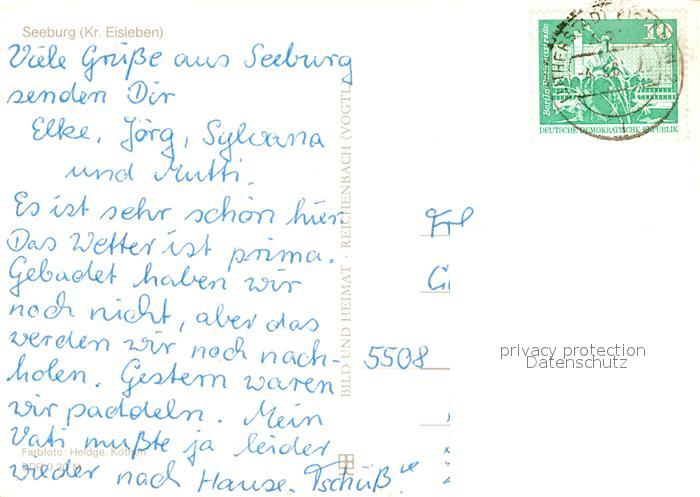 Seeburg (Kr. Eisleben)
Viele Grüße aus Seeburg
senden Dir
Elke, Jörg, Sylvana
und Mutti.
Es ist sehr schön hier.
Das Wetter ist prima.
Gebadet haben wir
noch nicht, aber das
werden wir noch nach-
holen. Gestern waren
wir paddeln. Mein
Vati mußte ja leider
wieder nach Hause. Tschüß
Farbfoto: Heldge, Köthen
BILD UND HEIMAT · REICHENBACH (VOGTL
10
DEUTSCHE DEMOKRATISCHE REPUBLIK
Frl
5508
privacy protection
Datenschutz